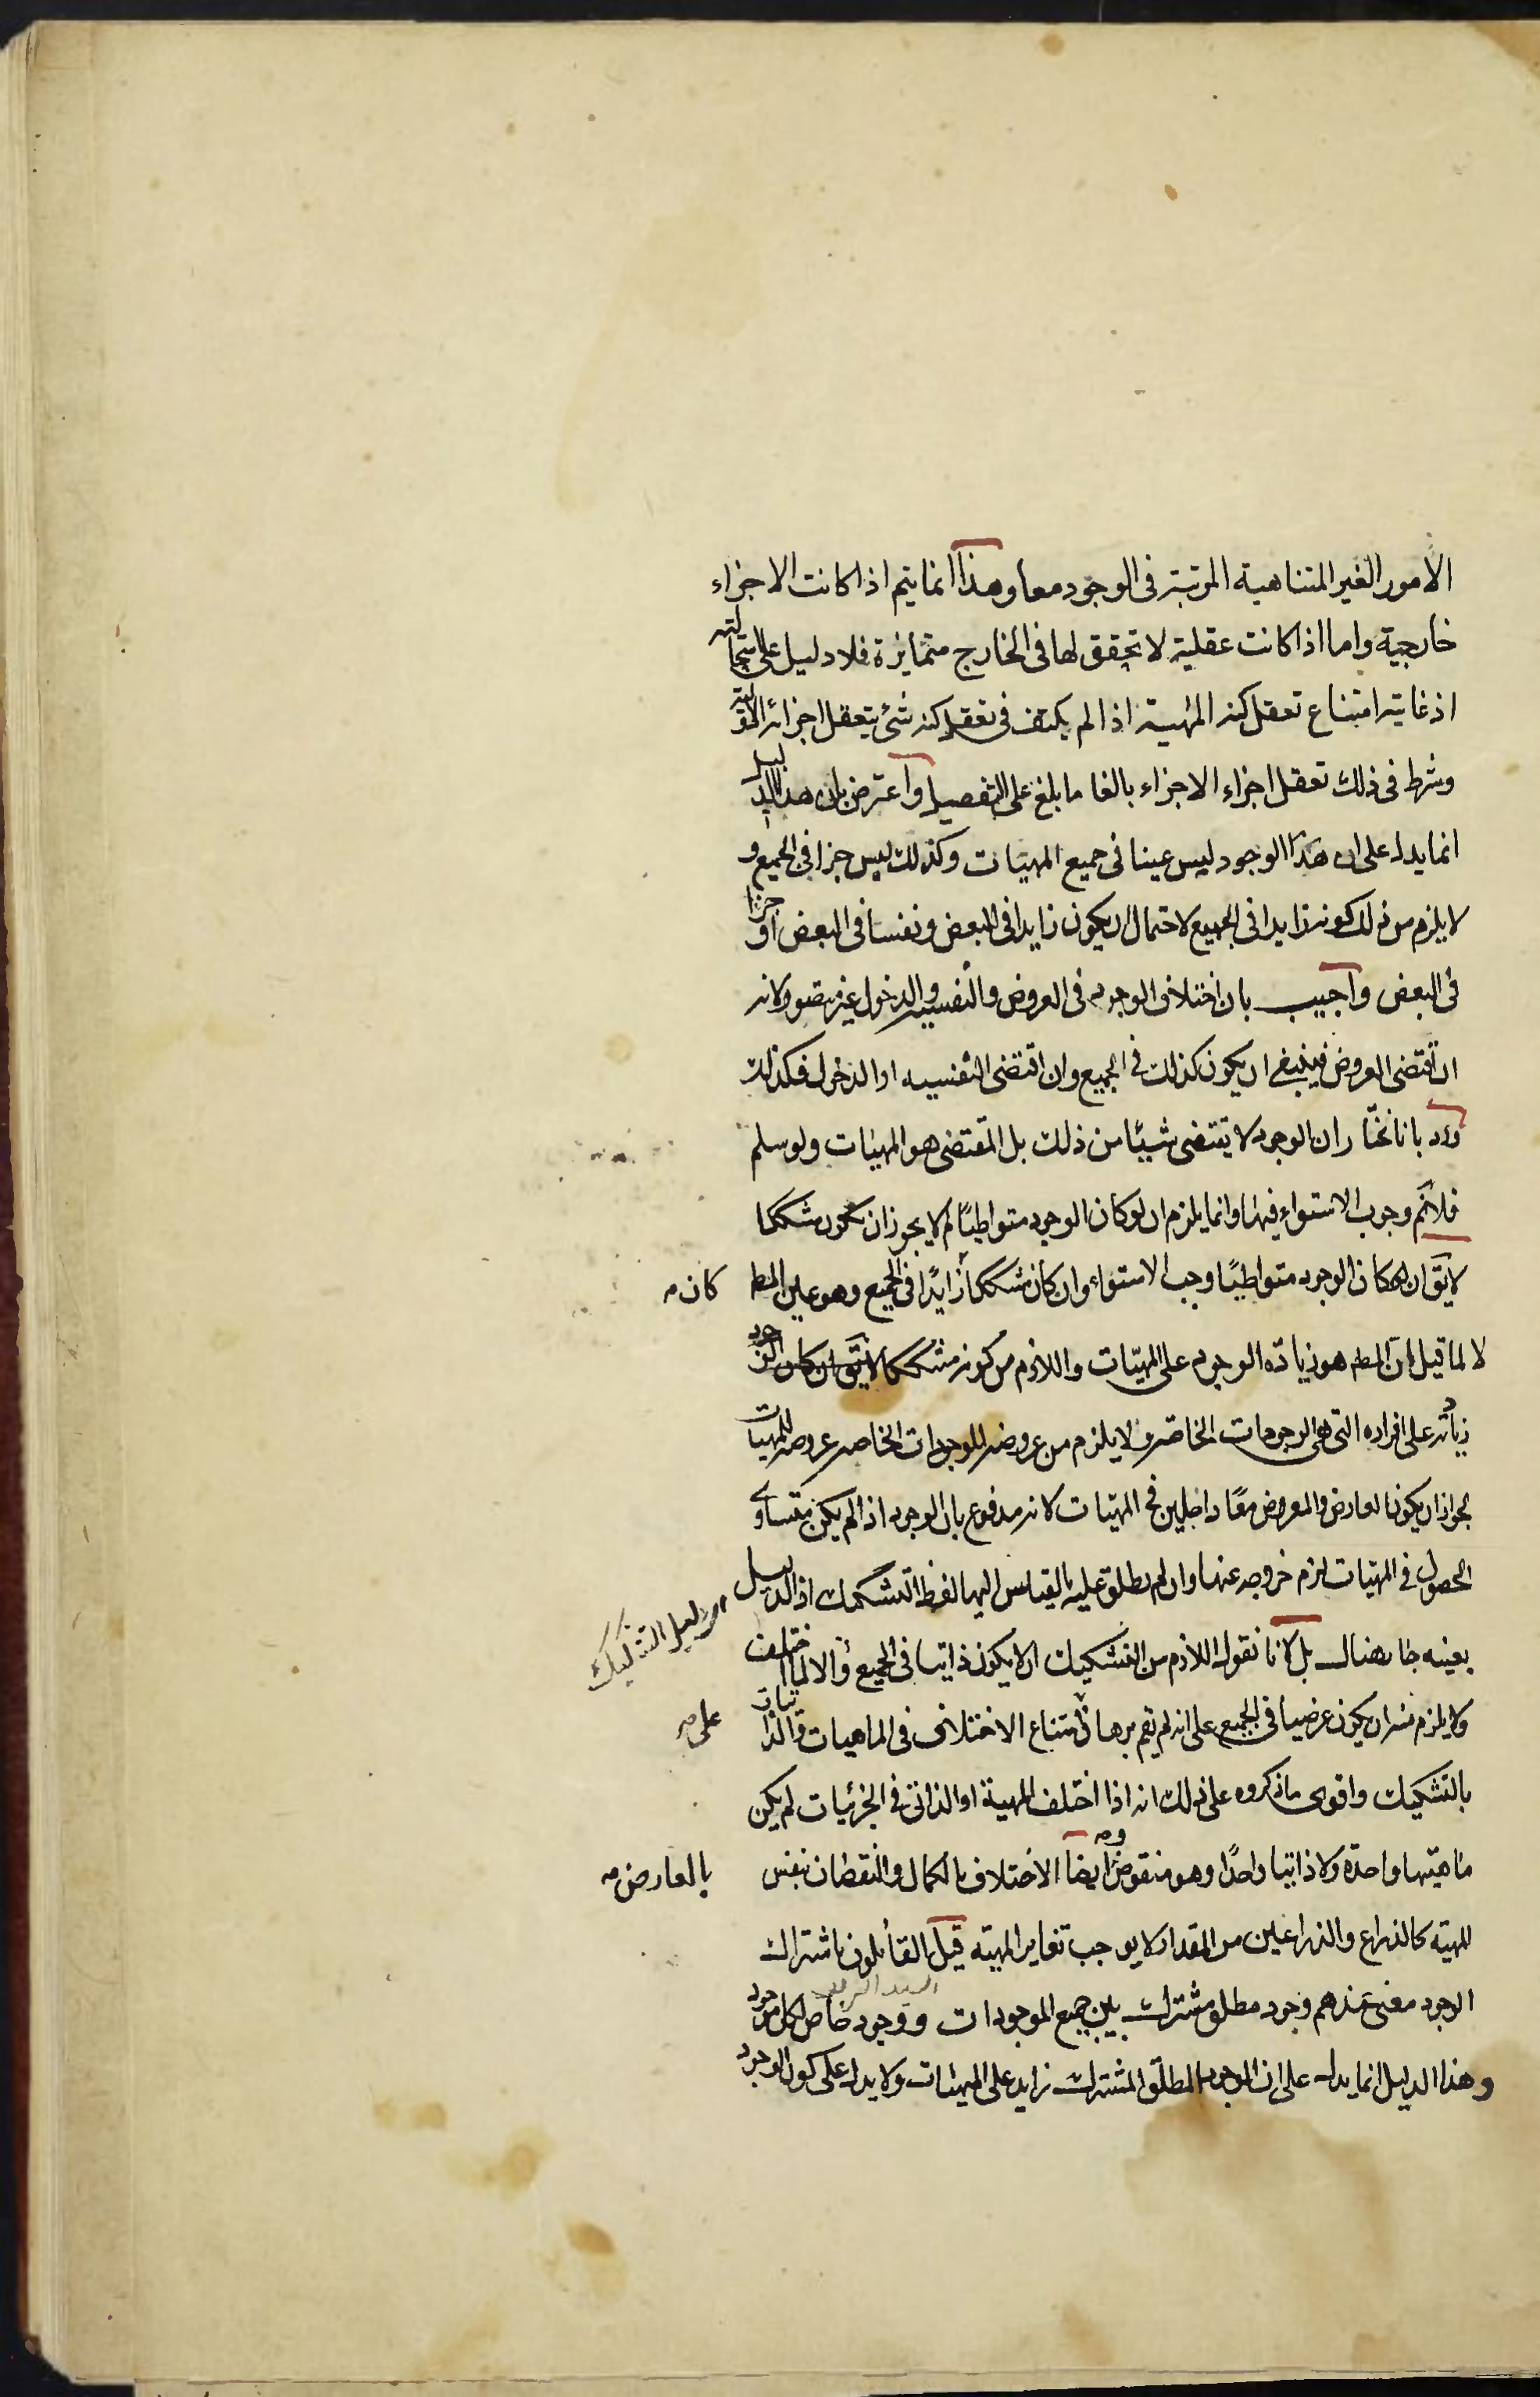 الامور الغير المتناهية المرتبة فى الوجود معا وهذا انما يتم اذا كانت الاجزاء
خارجية واما اذا كانت عقلية لا تحقق لها فى الخارج متمايزة فلا دليل على استحالته
اذ غايته امتناع تعقل كنه المهية اذا لم يكتف فى تعقل كنه شئ بتعقل اجزائه الاولية
وشرط فى ذلك تعقل اجزاء الاجزاء بالغا ما بلغ على التفصيل واعترض بان هذا الدليل
انما يدل على ان هذا الوجود ليس عينا فى جميع المهيات وكذلك ليس جزا فى الجميع و
لا يلزم من ذلك كونه زايدا فى الجميع لاحتمال ان يكون زايدا فى البعض ونفسا فى البعض او جزا
فى البعض واجيب بان اختلاف الوجود فى العروض والنفسية والدخول غير متصور لانه
ان اقتضى العروض فينبغى ان يكون كذلك فى الجميع وان اقتضى النفسيه او الدخول فكذلك
ورد بانا نختار ان الوجود لا يقتضى شيئا من ذلك بل المقتضى هو المهيات ولو سلم
فلانم وجوب الاستواء فيها وانما يلزم ان لو كان الوجود متواطيًا لم لا يجوز ان يكون مشككا
لا يقَ ان كان الوجود متواطيًا وجب الاستواء وان كان مشككا زايدًا فى الجميع وهو عين المط
كان مه
لا لما قيل ان المط هو زيادة الوجود على المهيات واللازم من كونه مشككا لا يقَ ان كان الوجود
زيادته على افراده التى هى الوجودات الخاصة ولا يلزم من عروضه للوجودات الخاصه عروضه للمهيات
لجواز ان يكون العارض والمعروض معًا داخلين فى المهيات لانه مدفوع بان الوجود اذا لم يكن متساوى
الحصول فى المهيات لزم خروجه عنها وان لم يطلق عليه بالقياس اليها لفظ التشكيك اذ الدليل
دليل التشكيك
بعينه بل لانا نقول اللازم من التشكيك ان لا يكون ذاتيا فى الجميع والا لما اختلف
ولا يلزم منه ان يكون عرضيا فى الجميع على انه لم يقم برهان امتناع الاختلاف فى الماهيات والذاتيات
على مه
بالتشكيك واقوى ما ذكروه على ذلك انه اذا اختلف المهية او الذاتى فى الجزئيات لم يكن
ماهيتها واحدة ولا ذاتيا واحدًا وهو منقوض وايضا الاختلاف بالكمال والنقصان بنفس
بالعارض مه
المهية كالذراع والذراعين من المقدار لا يوجب تغاير المهيه قيل القائلون باشتراك
السيد الشريف
الوجود معنى عندهم وجود مطلق مشترك بين جميع الموجودات ووجود خاص لكل موجود
وهذا الدليل انما يدل على ان الوجود المطلق المشترك زايد على المهيات ولا يدل على كون الوجود